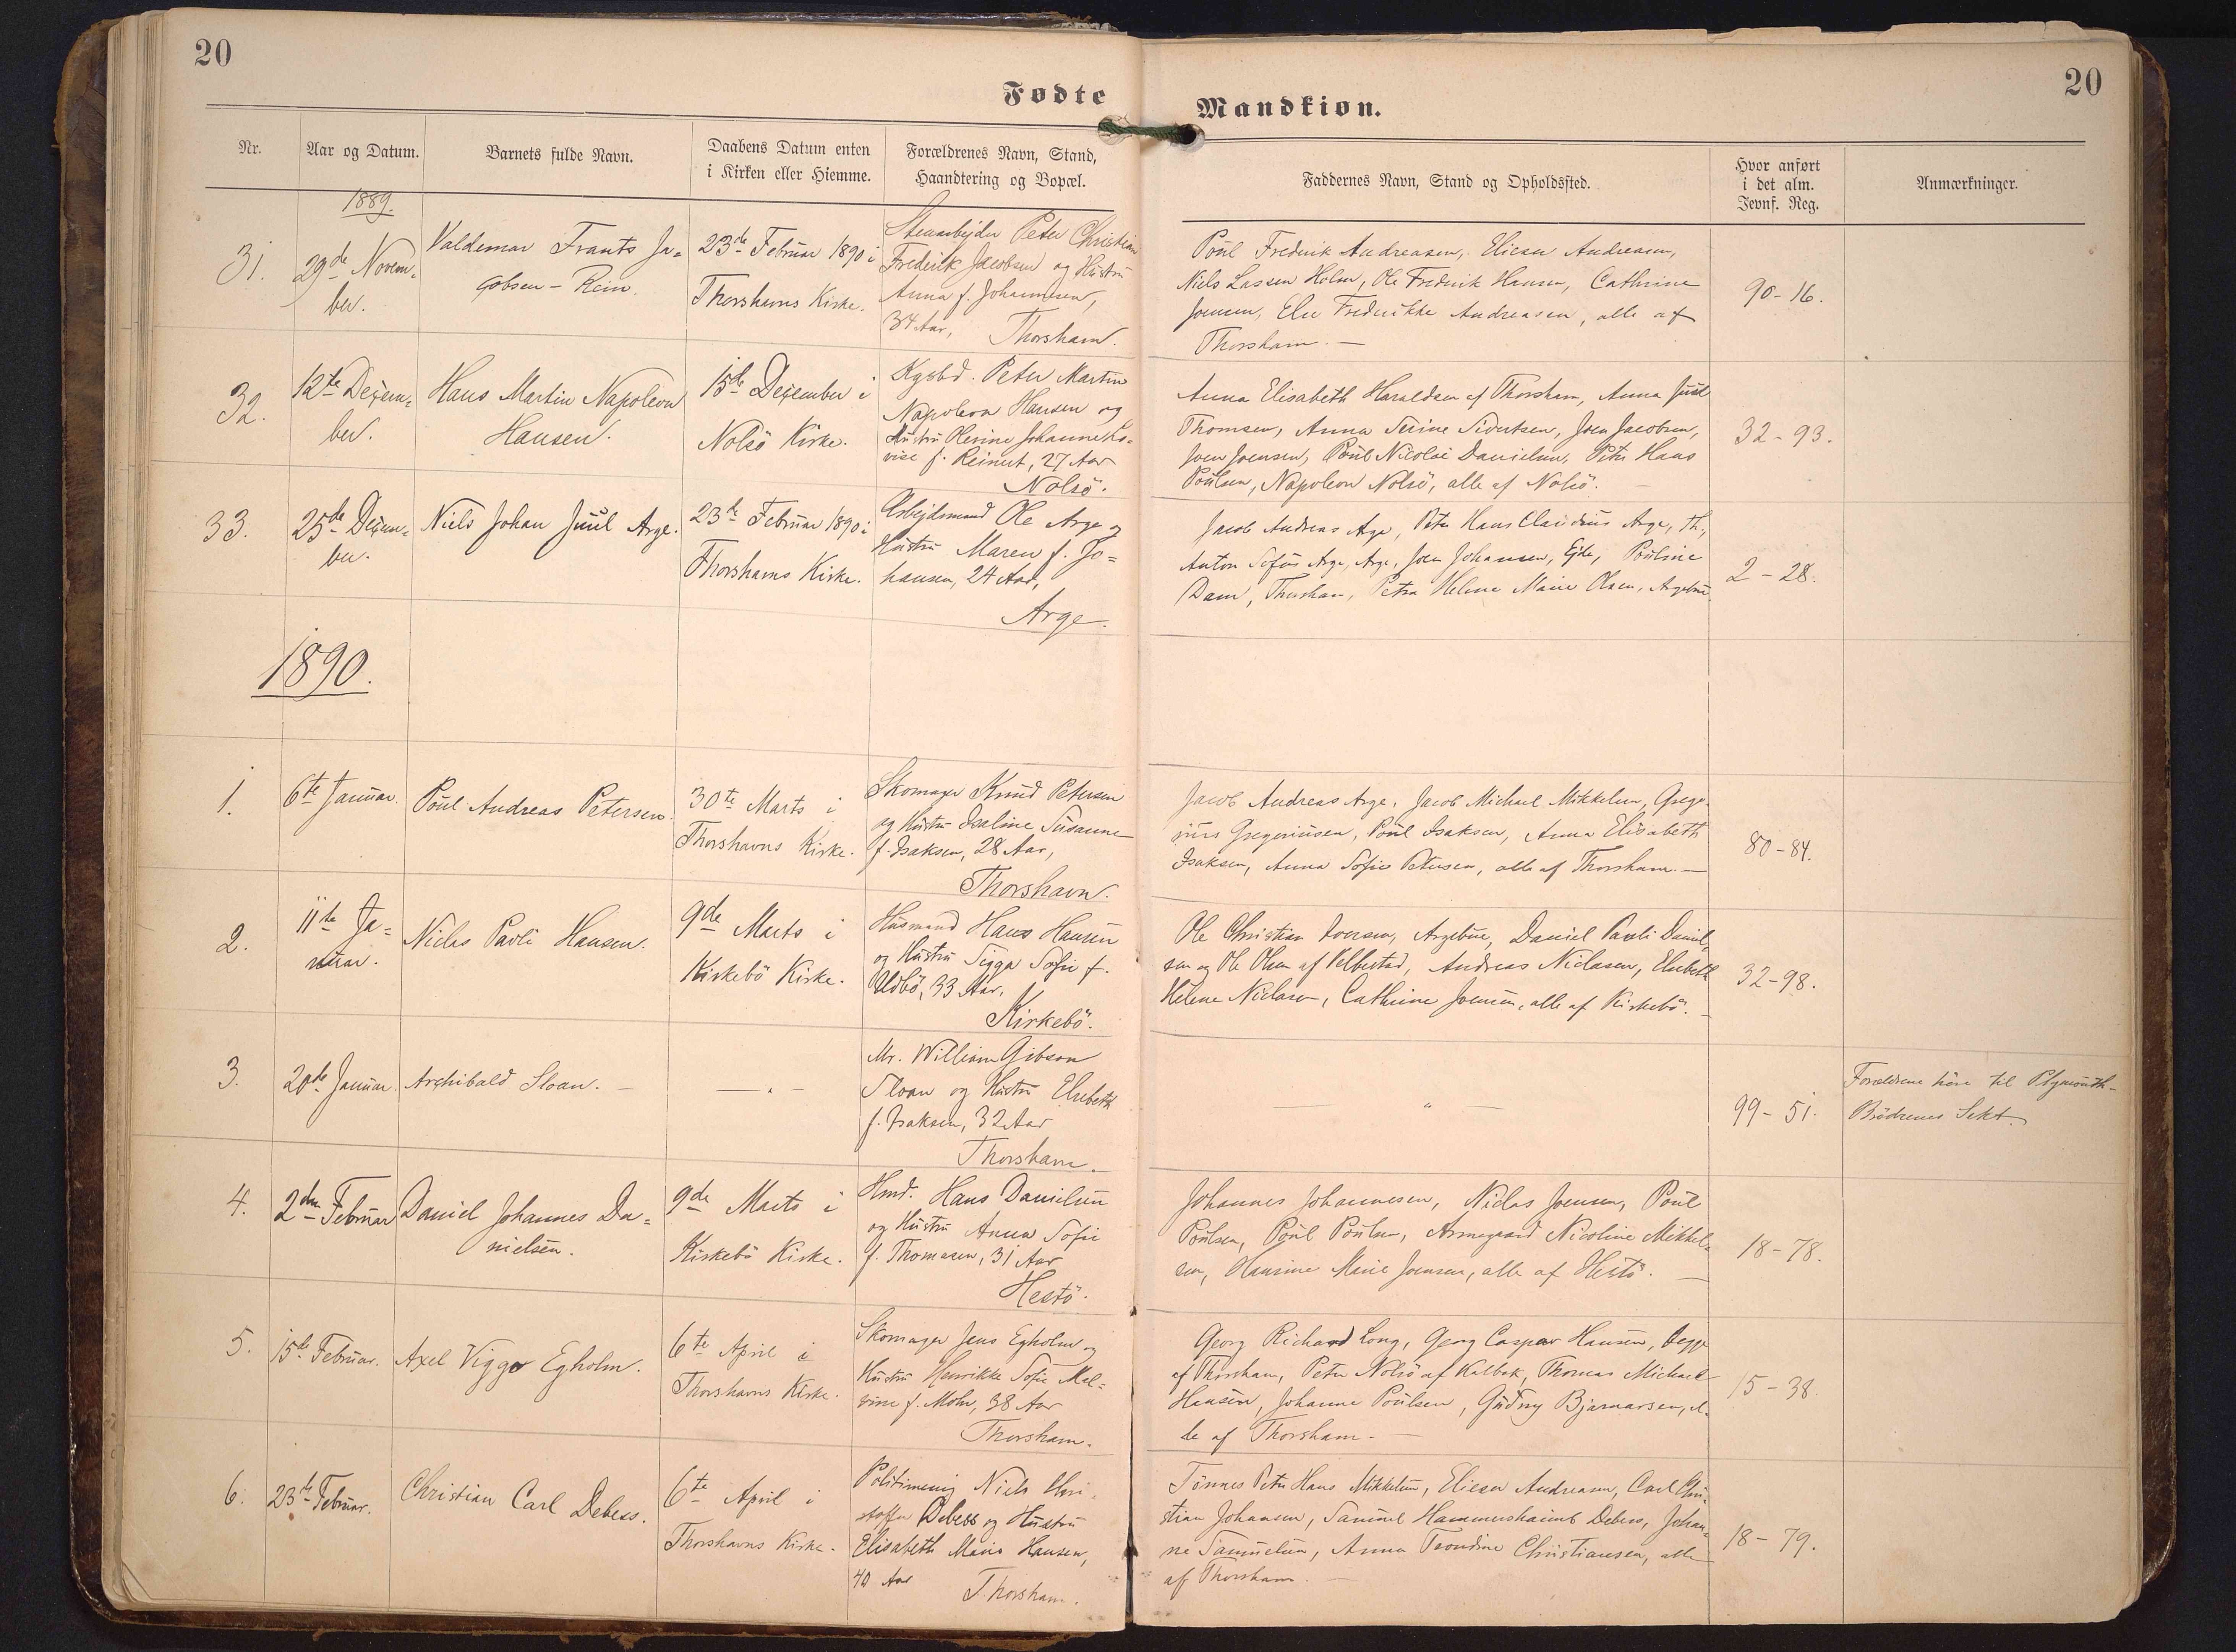 20
Fødte
Mandkiøn.
20
Nr.
Aar og Datum.
Barnets fulde Navn.
Daabens Datum enten
i Kirken eller Hiemme.
Forældrenes Navn, Stand,
Haandtering og Bopæl.
Faddernes Navn, Stand og Opholdssted.
Hvor anført
i det alm.
Jevnf. Reg.
Anmærkninger.
1889.
31.
29de Novem-
ber.
Valdemar Frants Ja-
cobsen - Rein.
23de Februar 1890 i
Thorshavns Kirke.
Stenarbejder Peter Christian
Frederik Jacobsen og Hustru
Anna f. Johannesen,
34 Aar, Thorshavn.
Poul Frederik Andreasen, Elieser Andreasen,
Niels Lassen Holm, Ole Frederik Hansen, Cathrine
Joensen, Else Frederikke Andreasen, alle af
Thorshavn. —
90-16.
32.
12te Decem-
ber.
Hans Martin Napoleon
Hansen.
15de December i
Nolsö Kirke.
Kgsbd. Peter Martin
Napoleon Hansen og
Hustru Olevine Johanne Lo-
vise f. Reinert, 27 Aar
Nolsö.
Anna Elisabeth Haraldsen af Thorshavn, Anna Juul
Thomsen, Anna Serine Sivertsen, Joen Jacobsen,
Joen Joensen, Poul Nicolai Danielsen, Peter Hans
Poulsen, Napoleon Nolsö, alle af Nolsö. —
32-93.
33.
25de Decem-
ber.
Niels Johan Juul Arge.
23de Februar 1890 i
Thorshavns Kirke.
Arbejdsmand Ole Arge og
Hustru Maren f. Jo-
hansen, 24 Aar,
Arge.
Jacob Andreas Arge, Peter Hans Claudius Arge, Th.,
Anton Sofus Arge, Arge, Joen Johansen, Ejde, Pouline
Dam, Thorshavn, Petra Helene Marie Olsen, Argebue.
2-28.
1890.
1.
6te Januar.
Poul Andreas Petersen.
30te Marts i
Thorshavns Kirke.
Skomager Knud Petersen
og Hustru Isaline Susanne
f. Isaksen, 28 Aar,
Thorshavn.
Jacob Andreas Arge, Jacob Michael Mikkelsen, Grego-
rius Gregoriusen, Poul Isaksen, Anna Elisabeth
Isaksen, Anna Sofie Petersen, alle af Thorshavn. —
80-84.
2.
11te Ja-
nuar.
Niclas Pavli Hansen.
9de Marts i
Kirkebö Kirke.
Husmand Hans Hansen
og Hustru Sigga Sofie f.
Udbö, 33 Aar,
Kirkebö.
Ole Christian Iversen, Argebue, Daniel Pauli Daniel-
sen og Ole Olsen af Velbestad, Andreas Niclasen, Elsebeth
Helene Niclasen, Cathrine Joensen, alle af Kirkebö. —
32-98.
3.
20de Januar.
Archibald Sloan. —
— " —
Mr. William Gibson
Sloan og Hustru Elsebeth
f. Isaksen, 32 Aar
Thorshavn.
— " —
99-51.
Forældrene höre til Plymouth-
Brödrenes Sekt.
4.
2den Februar
Daniel Johannes Da-
nielsen.
9de Marts i
Kirkebö Kirke.
Hmd. Hans Danielsen
og Hustru Anna Sofie
f. Thomasen, 31 Aar
Hestö.
Johannes Johannesen, Niclas Joensen, Poul
Poulsen, Poul Poulsen, Armgaard Nicoline Mikkel-
sen, Hansine Marie Joensen, alle af Hestö. —
18-78.
5.
15de Februar.
Axel Viggo Egholm.
6te April i
Thorshavns Kirke.
Skomager Jens Egholm og
Hustru Henrikke Sofie Mal-
vine f. Mohr, 38 Aar
Thorshavn.
Georg Richard Long, Georg Caspar Hansen, begge
af Thorshavn, Peter Nolsö af Kalbak, Thomas Michael
Hansen, Johanne Poulsen, Gudny Bjarnarsen, al-
le af Thorshavn. —
15-38.
6.
23de Februar.
Christian Carl Debess.
6te April i
Thorshavns Kirke.
Politimenig Niels Chri-
stoffer Debess og Hustru
Elisabeth Maria Hansen,
40 Aar Thorshavn.
Tönnes Peter Hans Mikkelsen, Elieser Andreasen, Carl Chri-
stian Johansen, Samuel Hammershaimb Debess, Johan-
ne Samuelsen, Anna Trondine Christiansen, alle
af Thorshavn. —
18-79.